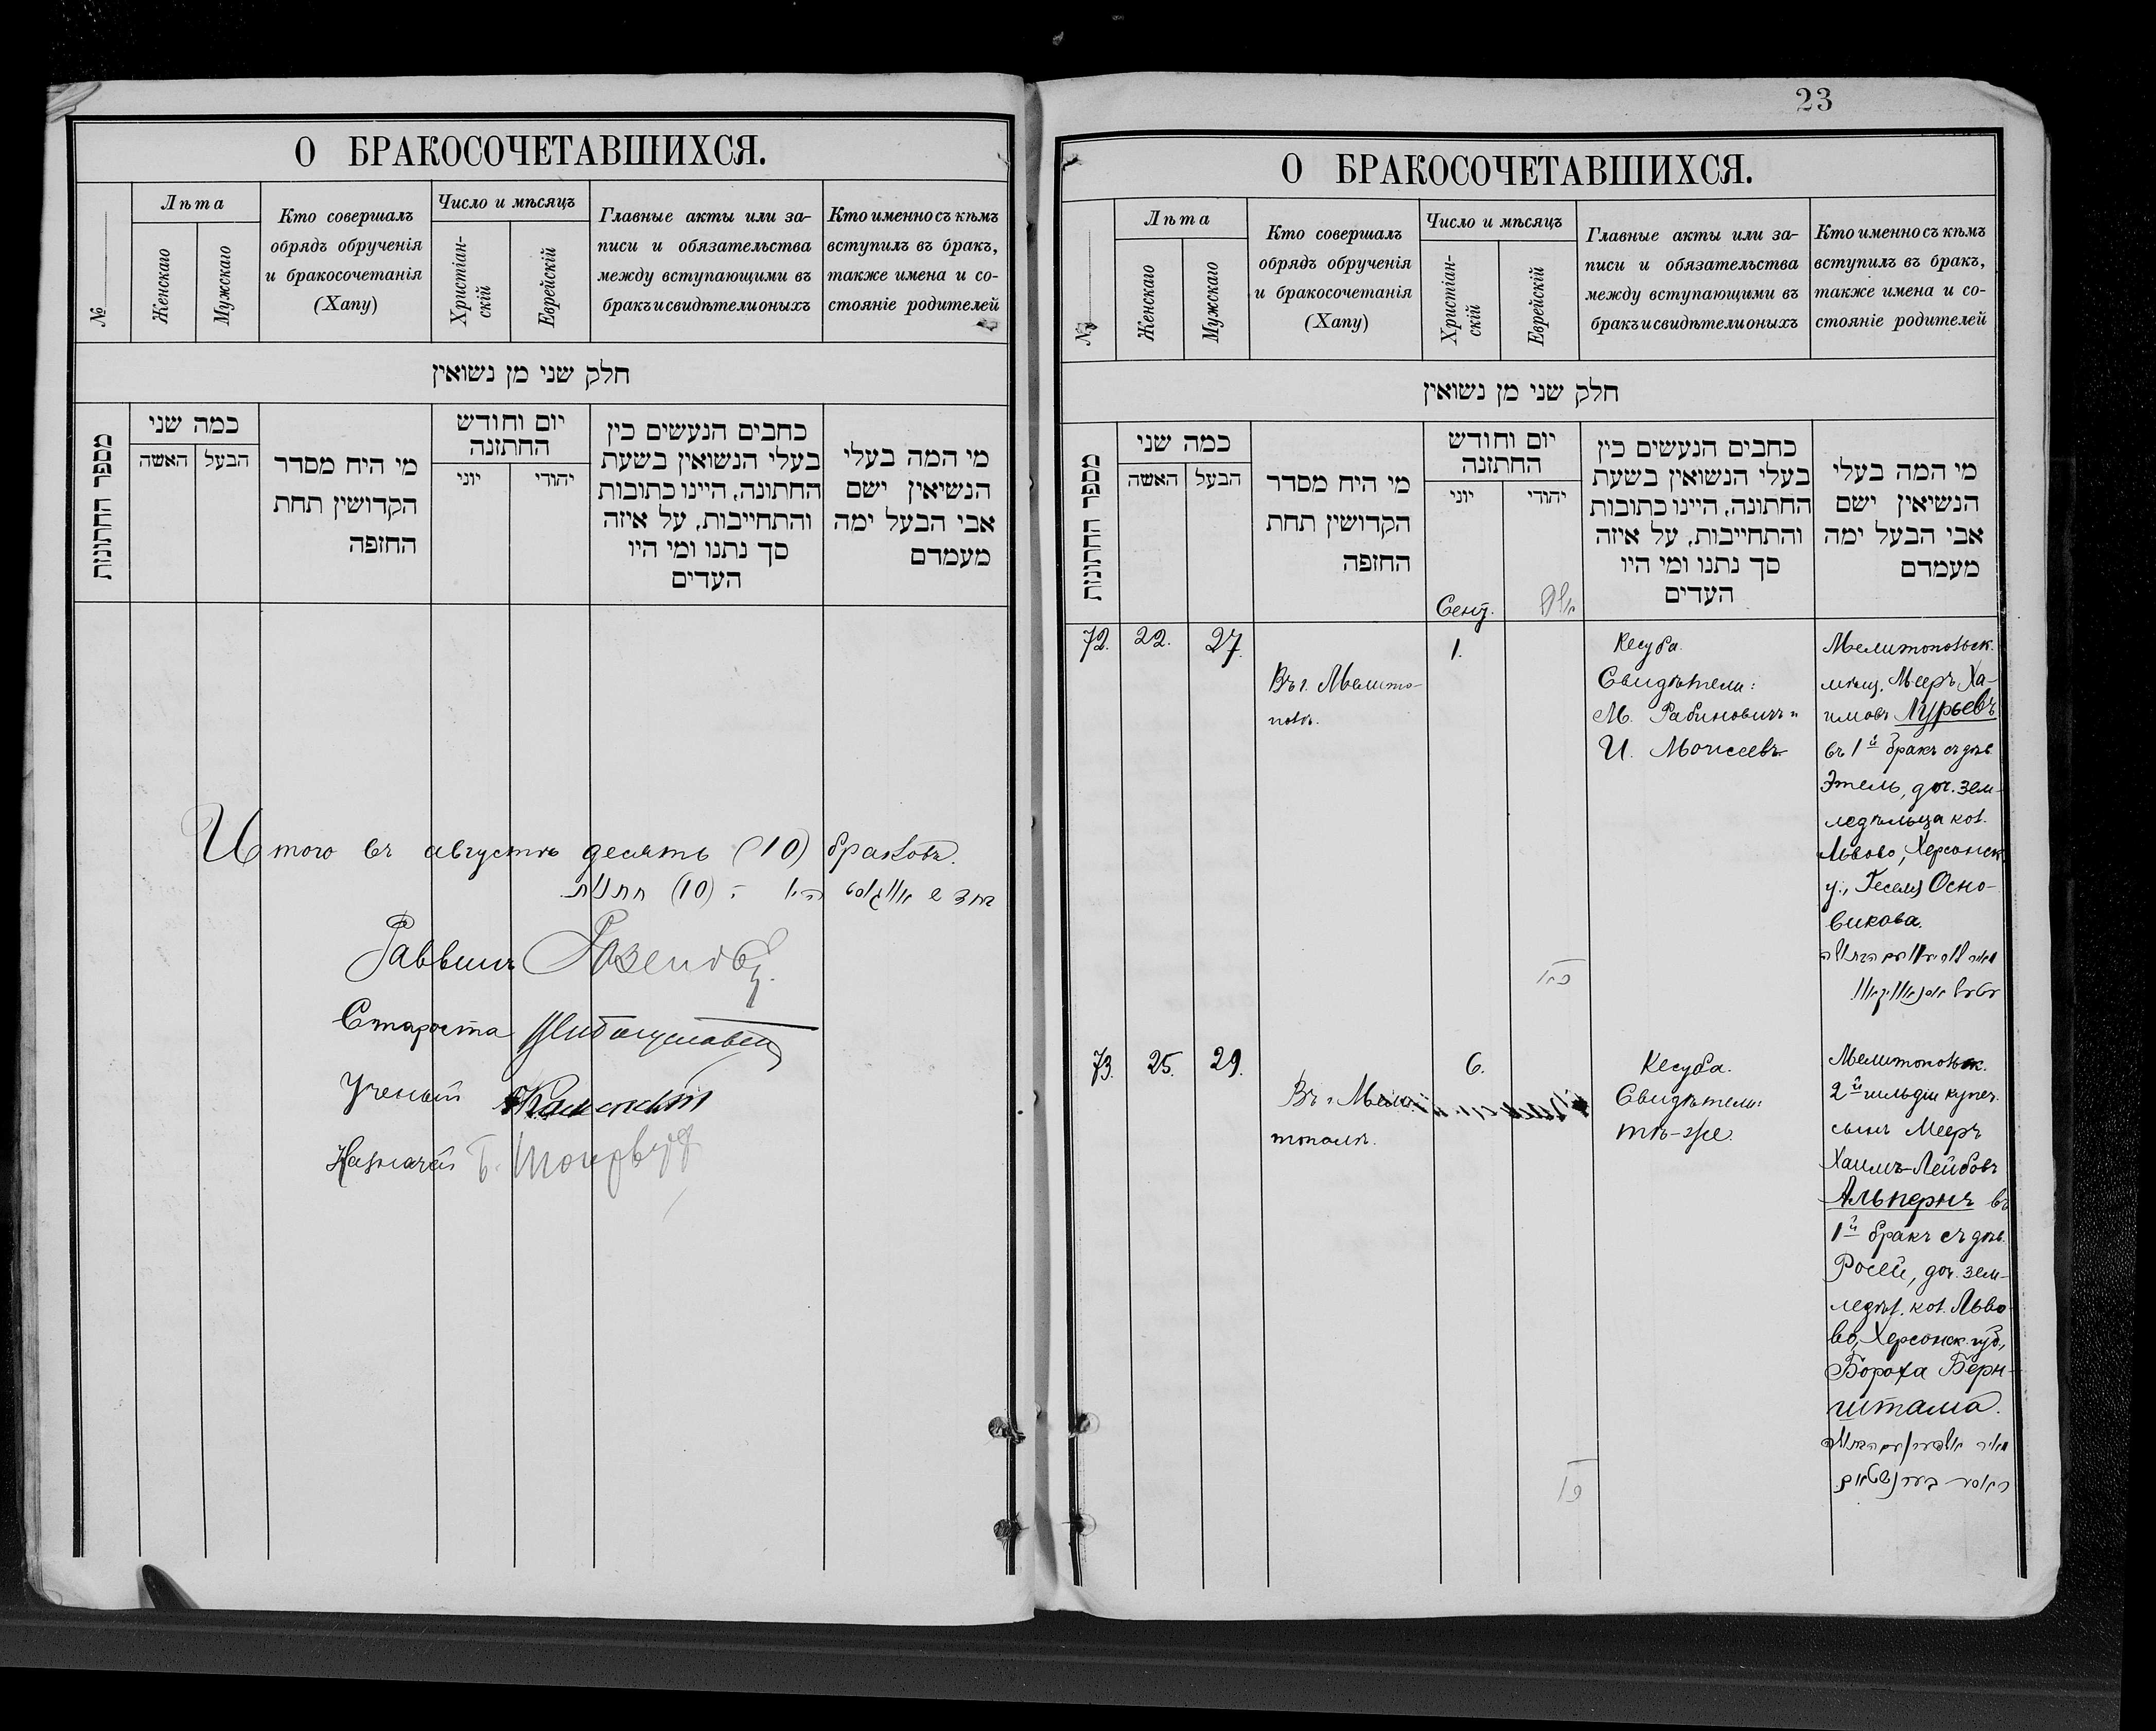 О БРАКОСОЧЕТАВШИХСЯ.
№
Лѣта
Женскаго
Мужскаго
Кто совершалъ
обрядъ обрученія
и бракосочетанія
(Хапу)
Число и мѣсяцъ
Христіан-
скій
Еврейскій
Главные акты или за-
писи и обязательства
между вступающими въ
бракъ и свидѣтели оныхъ
Кто именно съ кѣмъ
вступилъ въ бракъ,
также имена и со-
стояніе родителей
חלק שני מן נשואין
מספר החתונות
כמה שני
האשה
הבעל
מי היח מסדר
הקדושין תחת
החופה
יום וחודש
החתונה
יוני
יהודי
כחבים הנעשים כין
בעלי הנשואין בשעת
החתונה, היינו כתובות
והתחייבות, על איזה
סך נתנו ומי היו
העדים
מי המה בעלי
הנשיאין ישם
אבי הבעל ימה
מעמדם
Итого въ августѣ десять (10) браковъ.
Раввинъ
Староста
Ученый Каменскій
Казначей
23
О БРАКОСОЧЕТАВШИХСЯ.
№
Лѣта
Женскаго
Мужскаго
Кто совершалъ
обрядъ обрученія
и бракосочетанія
(Хапу)
Число и мѣсяцъ
Христіан-
скій
Еврейскій
Главные акты или за-
писи и обязательства
между вступающими въ
бракъ и свидѣтели оныхъ
Кто именно съ кѣмъ
вступилъ въ бракъ,
также имена и со-
стояніе родителей
חלק שני מן נשואין
מספר החתונות
כמה שני
האשה
הבעל
מי היח מסדר
הקדושין תחת
החופה
יום וחודש
החתונה
יוני
יהודי
כחבים הנעשים כין
בעלי הנשואין בשעת
החתונה, היינו כתובות
והתחייבות, על איזה
סך נתנו ומי היו
העדים
מי המה בעלי
הנשיאין ישם
אבי הבעל ימה
מעמדם
Сент.
72. 22. 27.
Въ г. Мелито-
полѣ.
1.
Кесуба.
Свидѣтели:
М. Рабиновичъ и
И. Моисеевъ
Мелитопольск.
мѣщ. Мееръ Ха-
имовъ Лурьевъ
въ 1й бракъ съ дѣв.
Этель, доч. зем-
ледѣльца кол.
Львово, Херсонск.
у., Геселя Осно-
викова.
73. 25. 29.
Въ г. Мели-
тополѣ.
6.
Кесуба.
Свидѣтели:
тѣ-же.
Мелитопольск.
2й гильдіи купеч.
сынъ Мееръ
Хаимъ-Лейбовъ
Альпернъ въ
1й бракъ съ дѣв.
Росей, доч. зем-
ледѣл. кол. Льво-
во, Херсонск. губ.,
Бороха Берн-
штама.